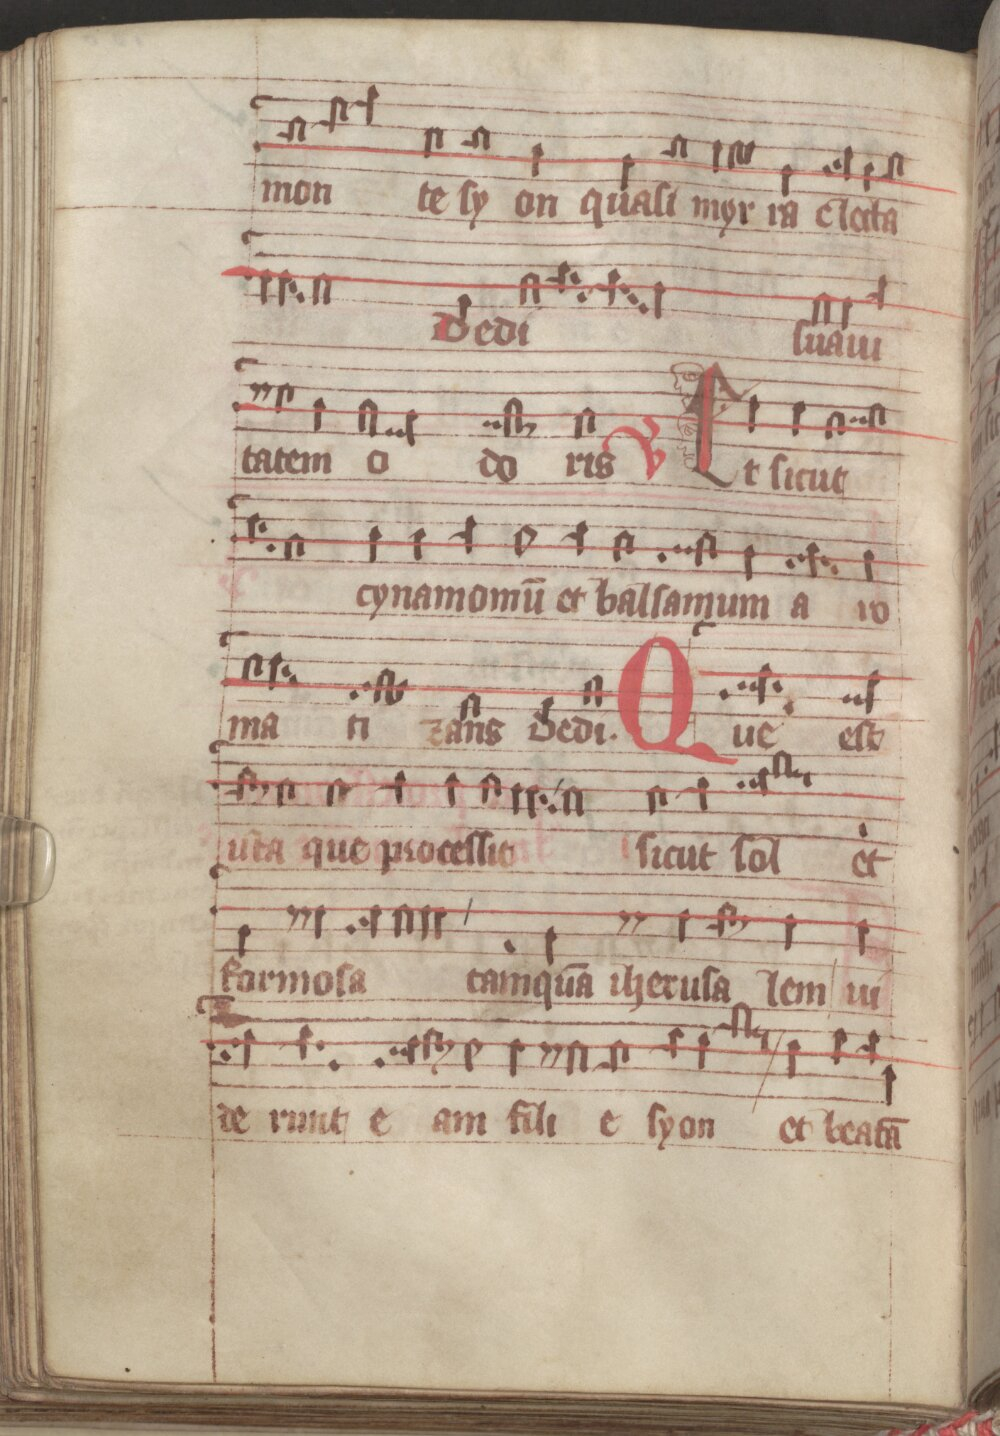 mon te sy on quasi myr ra electa
Dedi suaui
tatem o do ris V Et sicut
cynamomū et balsamum a ro
ma ti zans Dedi. Que est
ista que processit sicut sol et
formosa tamquā iherusa lem ui
de runt e am fili e syon et beatā